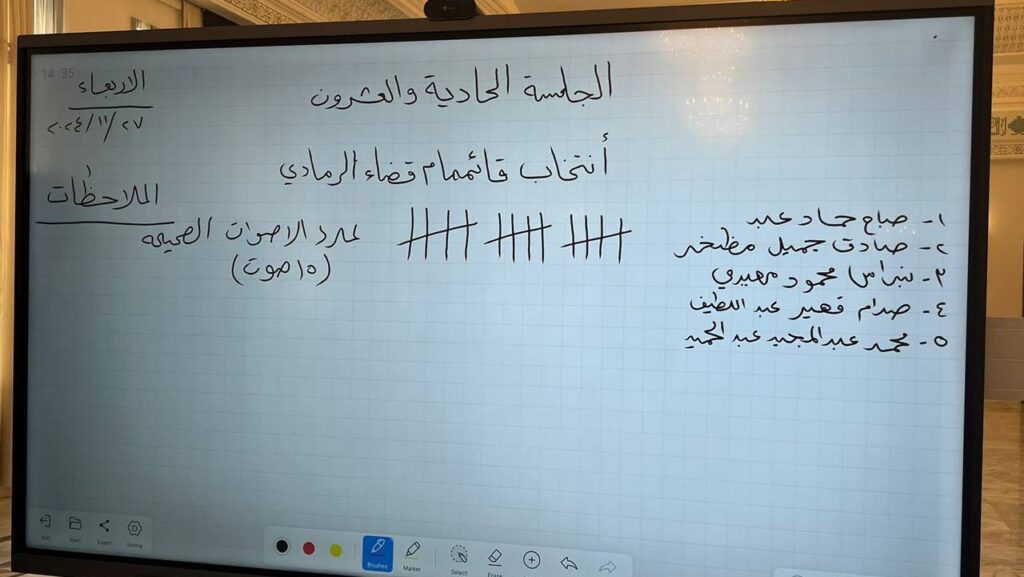 14:35
الاربعاء
٢٠٢٤/١١/٢٧
الجلسة الحادية والعشرون
أنتخاب قائممام قضاء الرمادي
الملاحظات
١- صباح حماد عبد
٢- صادق جميل مظخر
٣- نبراس محمود مهيدي
٤- صدام قهير عبد اللطيف
٥- محمد عبد المجيد عبد الحميد
عدد الاصوات الصحيحه
(١٥ صوت)
Exit
Open
Export
Setting
Brushes
Marker
Select
Erase